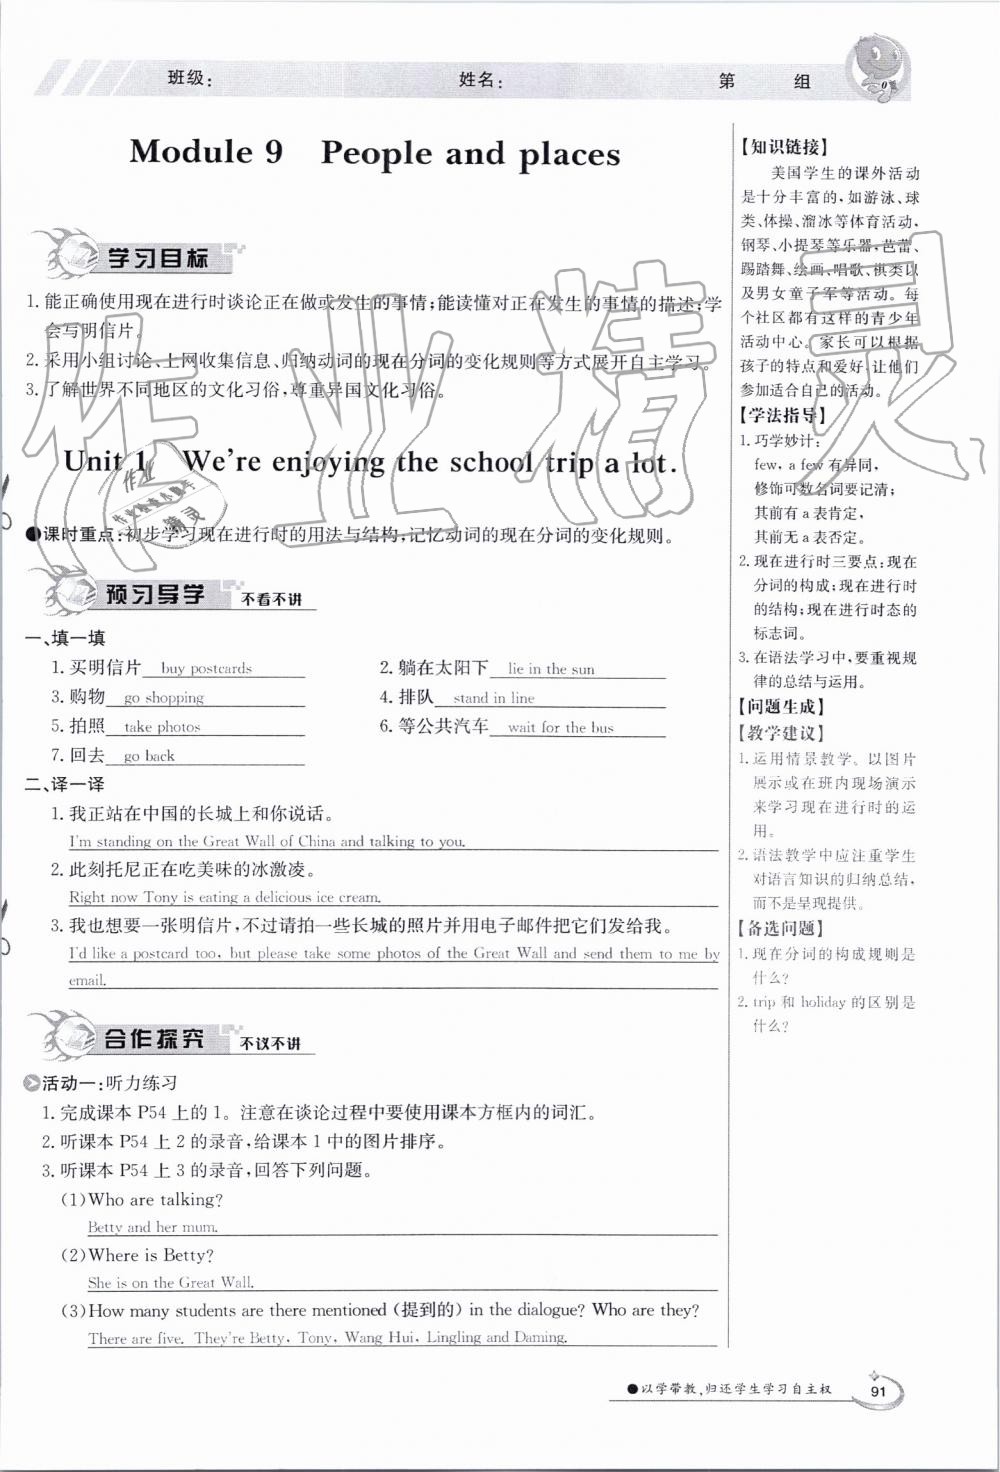 班级：　　姓名：　　第　　组
Module 9　People and places
学习目标
1. 能正确使用现在进行时谈论正在做或发生的事情;能读懂对正在发生的事情的描述;学
会写明信片。
2. 采用小组讨论、上网收集信息、归纳动词的现在分词的变化规则等方式展开自主学习。
3. 了解世界不同地区的文化习俗,尊重异国文化习俗。
Unit 1　We're enjoying the school trip a lot.
●课时重点:初步学习现在进行时的用法与结构;记忆动词的现在分词的变化规则。
预习导学 不看不讲
一、填一填
1. 买明信片 buy postcards　2. 躺在太阳下 lie in the sun
3. 购物 go shopping　4. 排队 stand in line
5. 拍照 take photos　6. 等公共汽车 wait for the bus
7. 回去 go back
二、译一译
1. 我正站在中国的长城上和你说话。
I'm standing on the Great Wall of China and talking to you.
2. 此刻托尼正在吃美味的冰激凌。
Right now Tony is eating a delicious ice cream.
3. 我也想要一张明信片,不过请拍一些长城的照片并用电子邮件把它们发给我。
I'd like a postcard too, but please take some photos of the Great Wall and send them to me by
email.
合作探究 不议不讲
活动一:听力练习
1. 完成课本 P54 上的 1。注意在谈论过程中要使用课本方框内的词汇。
2. 听课本 P54 上 2 的录音,给课本 1 中的图片排序。
3. 听课本 P54 上 3 的录音,回答下列问题。
(1)Who are talking?
Betty and her mum.
(2)Where is Betty?
She is on the Great Wall.
(3)How many students are there mentioned (提到的) in the dialogue? Who are they?
There are five. They're Betty, Tony, Wang Hui, Lingling and Daming.
【知识链接】
美国学生的课外活动
是十分丰富的,如游泳、球
类、体操、溜冰等体育活动,
钢琴、小提琴等乐器,芭蕾、
踢踏舞、绘画、唱歌、棋类以
及男女童子军等活动。每
个社区都有这样的青少年
活动中心。家长可以根据
孩子的特点和爱好,让他们
参加适合自己的活动。
【学法指导】
1. 巧学妙计:
few, a few 有异同,
修饰可数名词要记清;
其前有 a 表肯定,
其前无 a 表否定。
2. 现在进行时三要点:现在
分词的构成;现在进行时
的结构;现在进行时态的
标志词。
3. 在语法学习中,要重视规
律的总结与运用。
【问题生成】
【教学建议】
1. 运用情景教学。以图片
展示或在班内现场演示
来学习现在进行时的运
用。
2. 语法教学中应注重学生
对语言知识的归纳总结,
而不是呈现提供。
【备选问题】
1. 现在分词的构成规则是
什么?
2. trip 和 holiday 的区别是
什么?
●以学带教,归还学生学习自主权
91
作业精灵
作业
精灵